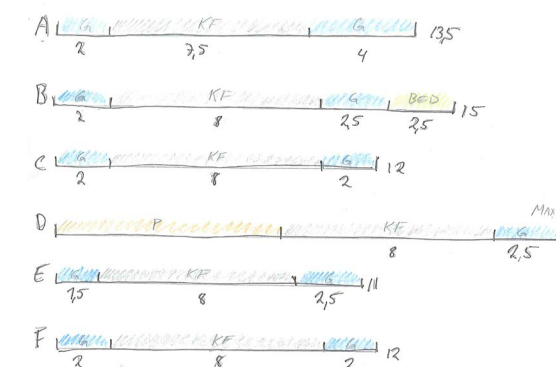 A G KF G 13,5
2 7,5 4
B G KF G BED 15
2 8 2,5 2,5
C G KF G 12
2 8 2
MAX
D P KF G
8 2,5
E G KF G 11
1,5 8 2,5
F G KF G 12
2 8 2